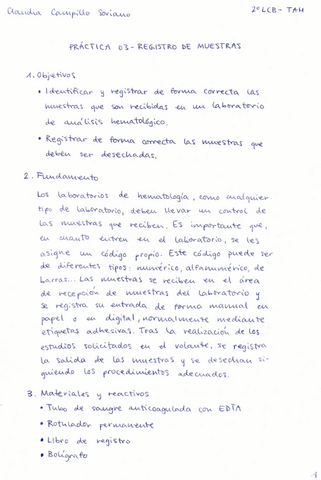 Claudia Campillo Soriano
2º LCB - TAH
PRÁCTICA 03 - REGISTRO DE MUESTRAS
1. Objetivos
• Identificar y registrar de forma correcta las
muestras que son recibidas en un laboratorio
de análisis hematológico.
• Registrar de forma correcta las muestras que
deben ser desechadas.
2. Fundamento
Los laboratorios de hematología, como cualquier
tipo de laboratorio, deben llevar un control de
las muestras que reciben. Es importante que,
en cuanto entren en el laboratorio, se les
asigne un código propio. Este código puede ser
de diferentes tipos: numérico, alfanumérico, de
barras... Las muestras se reciben en el área
de recepción de muestras del laboratorio y
se registra su entrada de forma manual en
papel o en digital, normalmente mediante
etiquetas adhesivas. Tras la realización de los
estudios solicitados en el volante, se registra
la salida de las muestras y se desechan si-
guiendo los procedimientos adecuados.
3. Materiales y reactivos
• Tubo de sangre anticoagulada con EDTA
• Rotulador permanente
• Libro de registro
• Bolígrafo
1